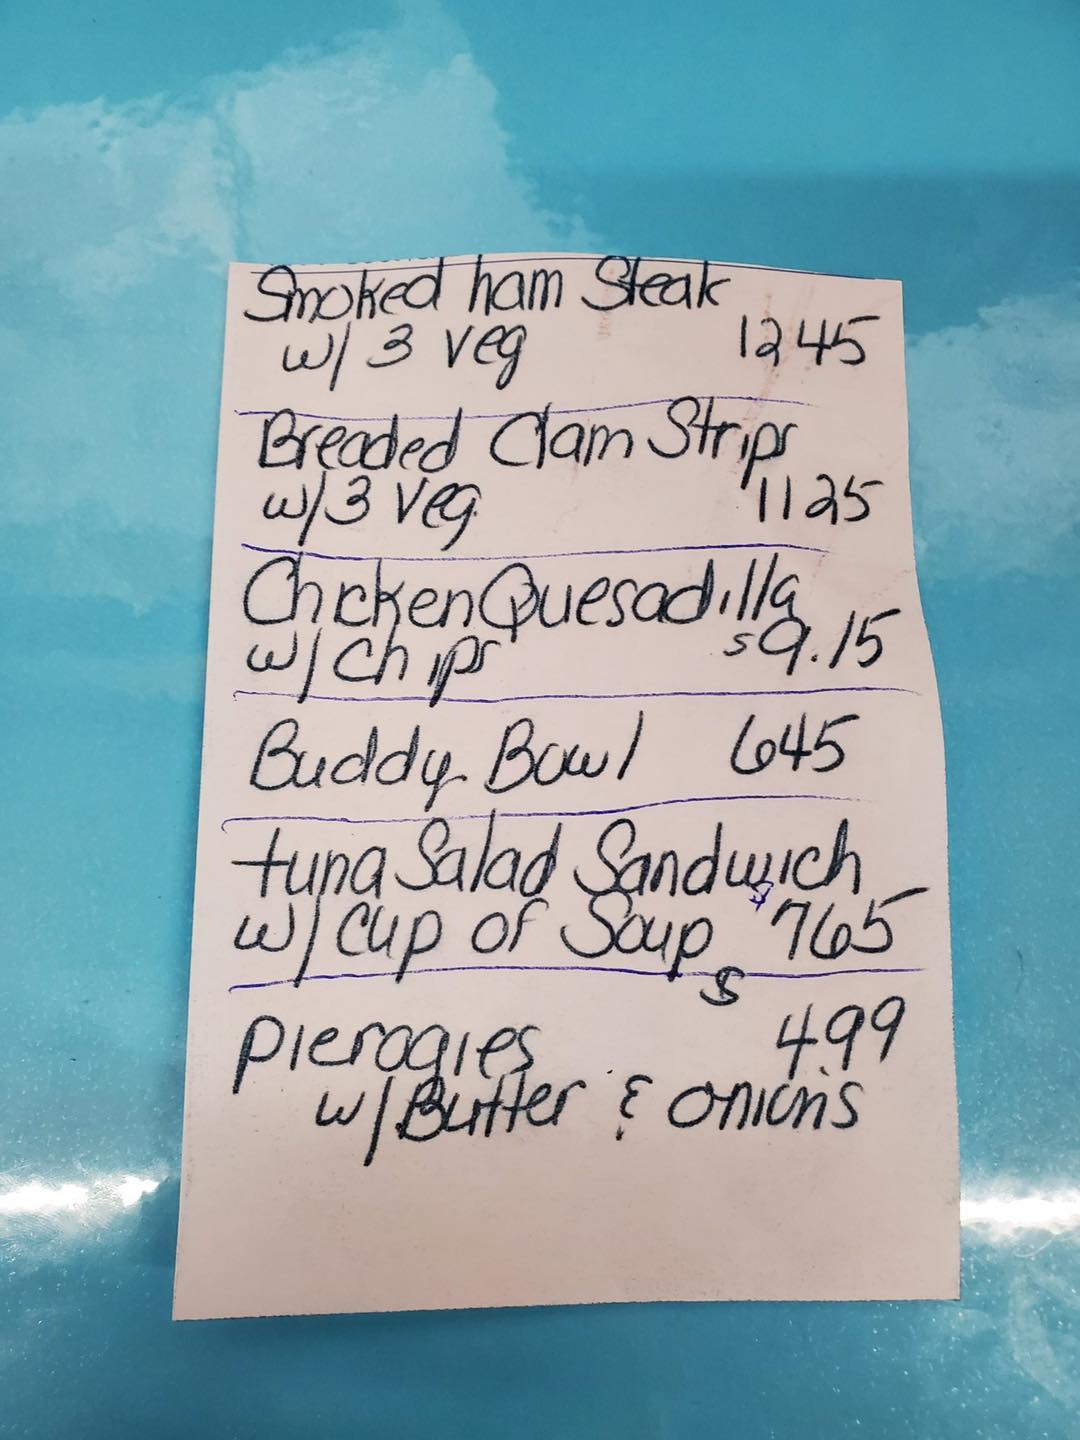 Smoked ham Steak
w/ 3 veg 1245
Breaded Clam Strips
w/3 Veg 1125
Chicken Quesadilla
w/ Chips $9.15
Buddy Bowl 645
tuna Salad Sandwich
w/ Cup of Soup $765
pierogies $499
w/ Butter & onions